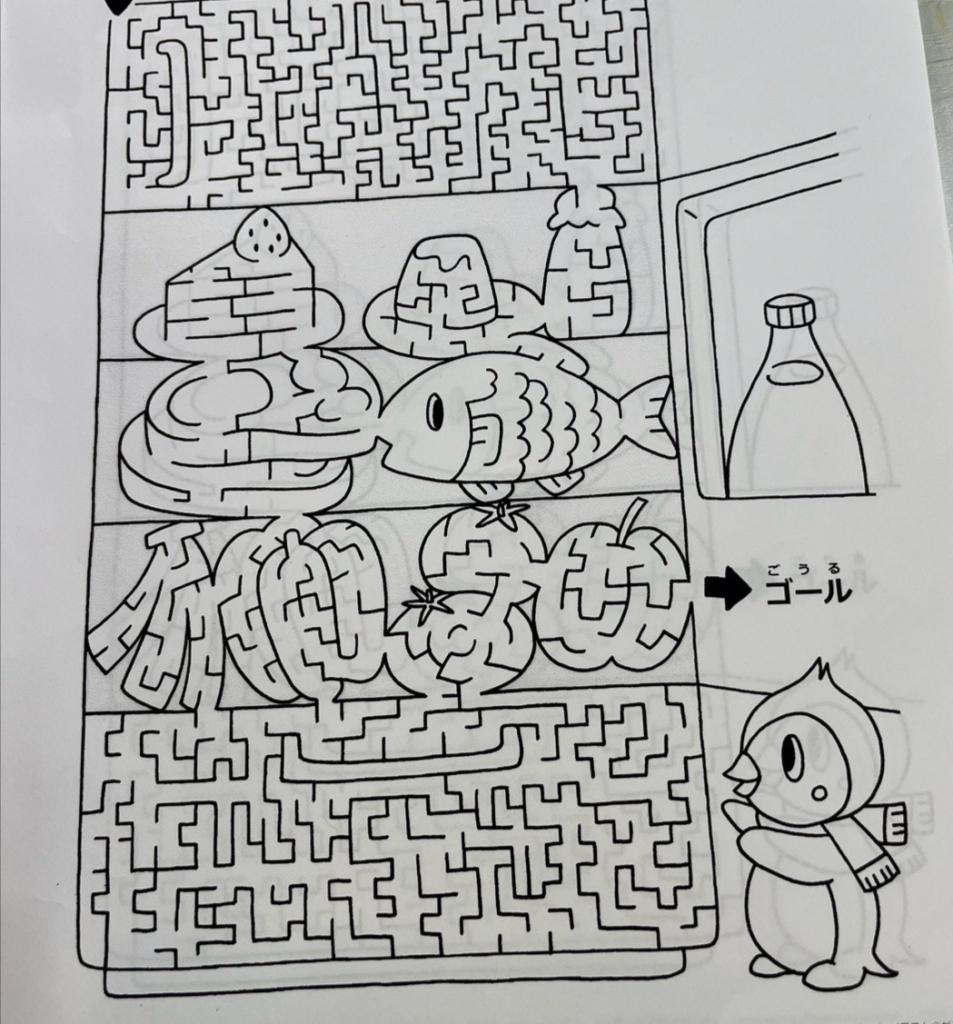 ごうる
ゴール